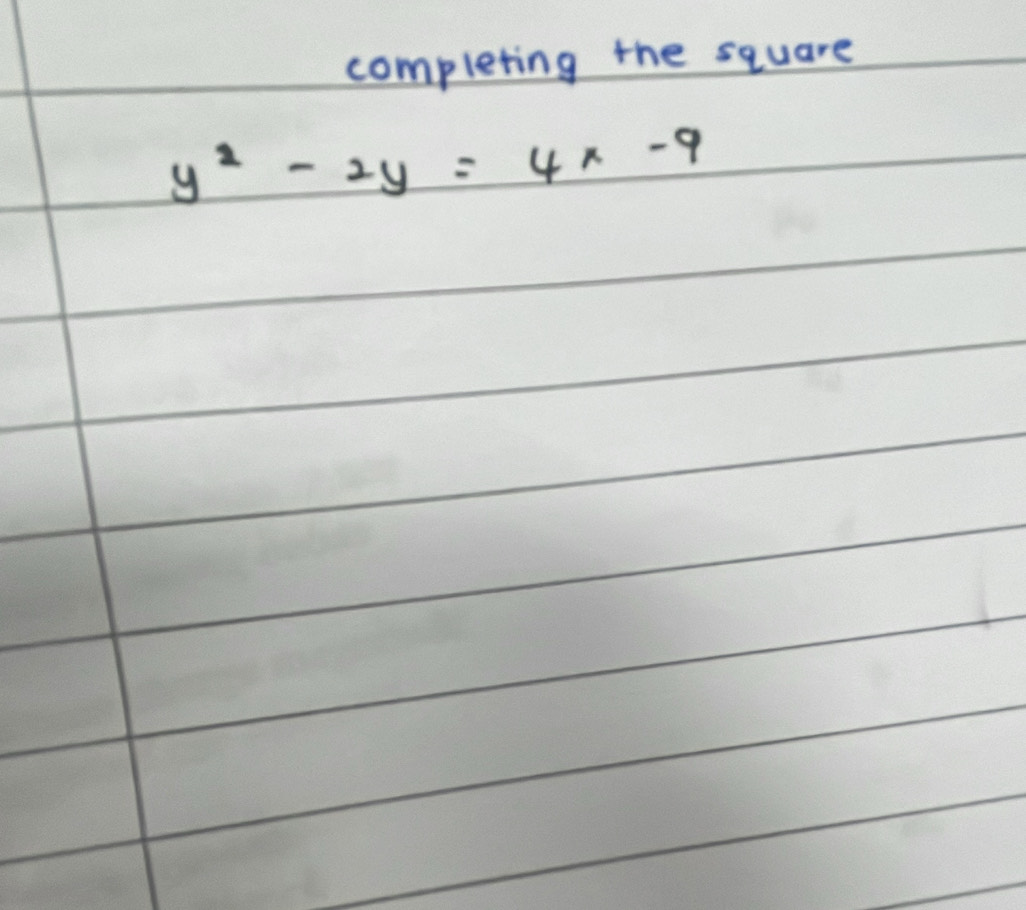 completing the square
y² - 2y = 4x -9